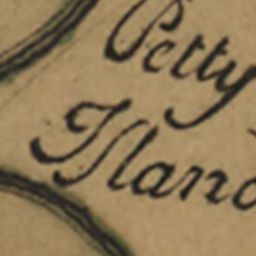 Petty
Island